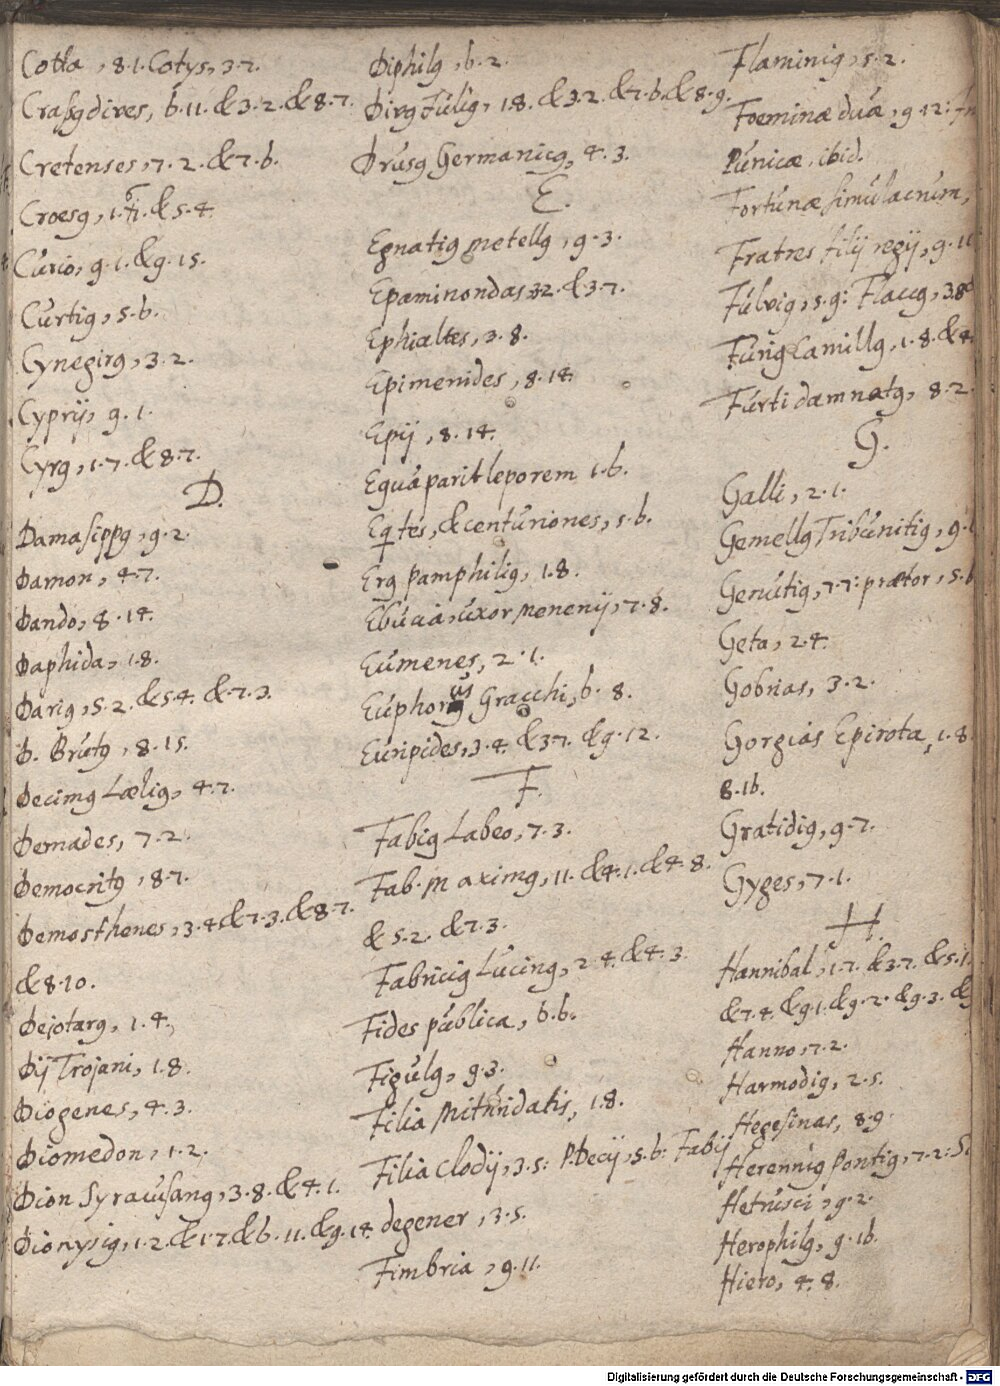 Cotta, 8.1. Cotys, 3.7.
Crassꝰ dives, 6.11. & 3.2. & 8.7.
Cretenses, 7.2. & 7.6.
Croesꝰ, 1. & 5.4
Curio, 9.1. & 9.15.
Curtiꝰ, 5.6.
Cynegirꝰ, 3.2.
Cyprij, 9.1.
Cyrꝰ, 1.7. & 8.7.
D.
Damasippꝰ, 9.2.
Damon, 4.7.
Dando, 8.14.
Daphida, 1.8.
Dariꝰ, 5.2. & 5.4. & 7.3.
D. Brutꝰ, 8.15.
Decimꝰ Læliꝰ, 4.7.
Demades, 7.2.
Democritꝰ, 8.7.
Demosthenes, 3.4 & 7.3. & 8.7.
& 8.10.
Dejotarꝰ, 1.4,
Dij Trojani, 1.8.
Diogenes, 4.3.
Diomedon, 1.2.
Dion Syracusanꝰ, 3.8. & 4.1.
Dionysiꝰ, 1.2. & 1.7. & 6.11. & 9.14.
Diphilꝰ, 6.2.
Divꝰ Juliꝰ, 1.8. & 3.2. & 7.6. & 8.9.
Drusꝰ Germanicꝰ, 4.3.
E.
Egnatiꝰ metellꝰ, 9.3.
Epaminondas, 3.2. & 3.7.
Ephialtes, 3.8.
Epimenides, 8.14.
Epij, 8.14.
Equa parit leporem 1.6.
Eqtes, & centuriones, 5.6.
Erꝰ Pamphiliꝰ, 1.8.
Ebucia, uxor Menenij, 7.8.
Eumenes, 2.1.
Euphorꝰ us Gracchi, 6.8.
Euripides, 3.4. & 3.7. & 9.12.
F.
Fabiꝰ Labeo, 7.3.
Fab. Maximꝰ, 1.1. & 4.1. & 4.8.
& 5.2. & 7.3.
Fabriciꝰ Lucinꝰ, 2.4. & 4.3.
Fides publica, 6.6.
Figulꝰ, 9.3.
Filia Mithridatis, 1.8.
Filia Clodij, 3.5: P. Decij, 5.6: Fabij
degener, 3.5.
Fimbria, 9.11.
Flaminiꝰ, 5.2.
Foeminæ duæ, 9.12:
Punicæ, ibid.
Fortunæ simulacrum,
Fratres filij regij, 9.11
Fulviꝰ, 5.9: Flaccꝰ, 3.8
Furiꝰ Camillꝰ, 1.8. & 4.
Furti damnatꝰ, 8.2
G.
Galli, 2.1.
Gemellꝰ Tribunitiꝰ, 9.
Genutiꝰ, 7.7: prætor, 5.6
Geta, 2.4.
Gobrias, 3.2.
Gorgias Epirota, 1.8
8.16.
Gratidiꝰ, 9.7.
Gyges, 7.1.
H.
Hannibal, 1.7. & 3.7. & 5.1.
& 7.4. & 9.1. & 9.2. & 9.3. &
Hanno, 7.2.
Harmodiꝰ, 2.5.
Hegesinas, 8.9.
Herenniꝰ Pontiꝰ, 7.2:
Hetrusci, 9.2.
Herophilꝰ, 9.16.
Hiero, 4.8.
Digitalisierung gefördert durch die Deutsche Forschungsgemeinschaft - DFG